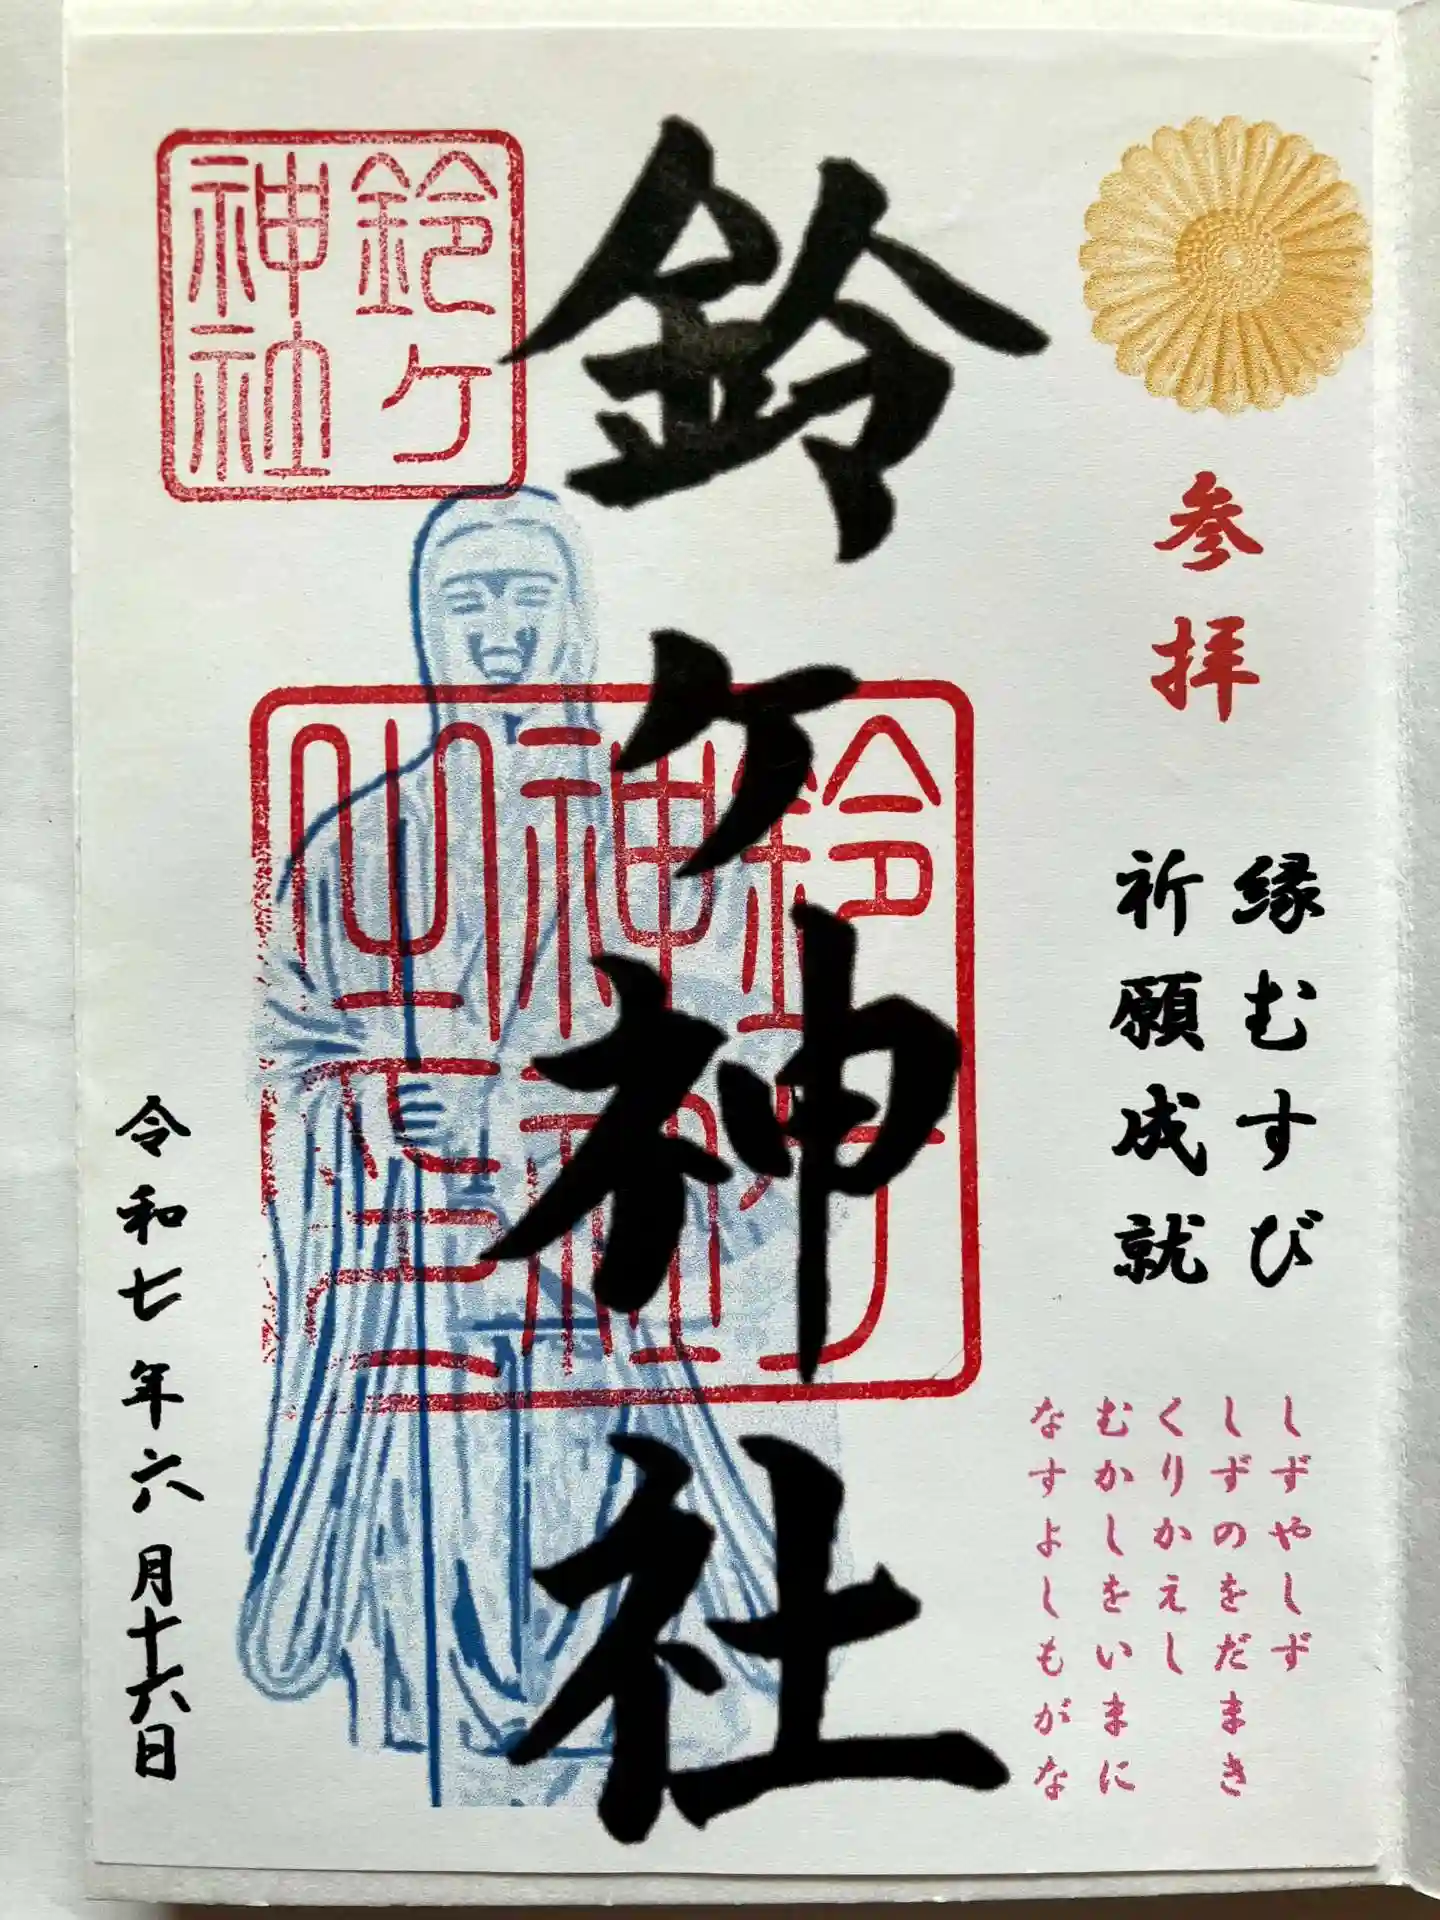 参拝
縁むすび
祈願成就
しずやしず
しずのをだまき
くりかえし
むかしをいまに
なすよしもがな
鈴ヶ神社
鈴ヶ
神社
鈴ヶ
神社
之印
令和七年六月十六日